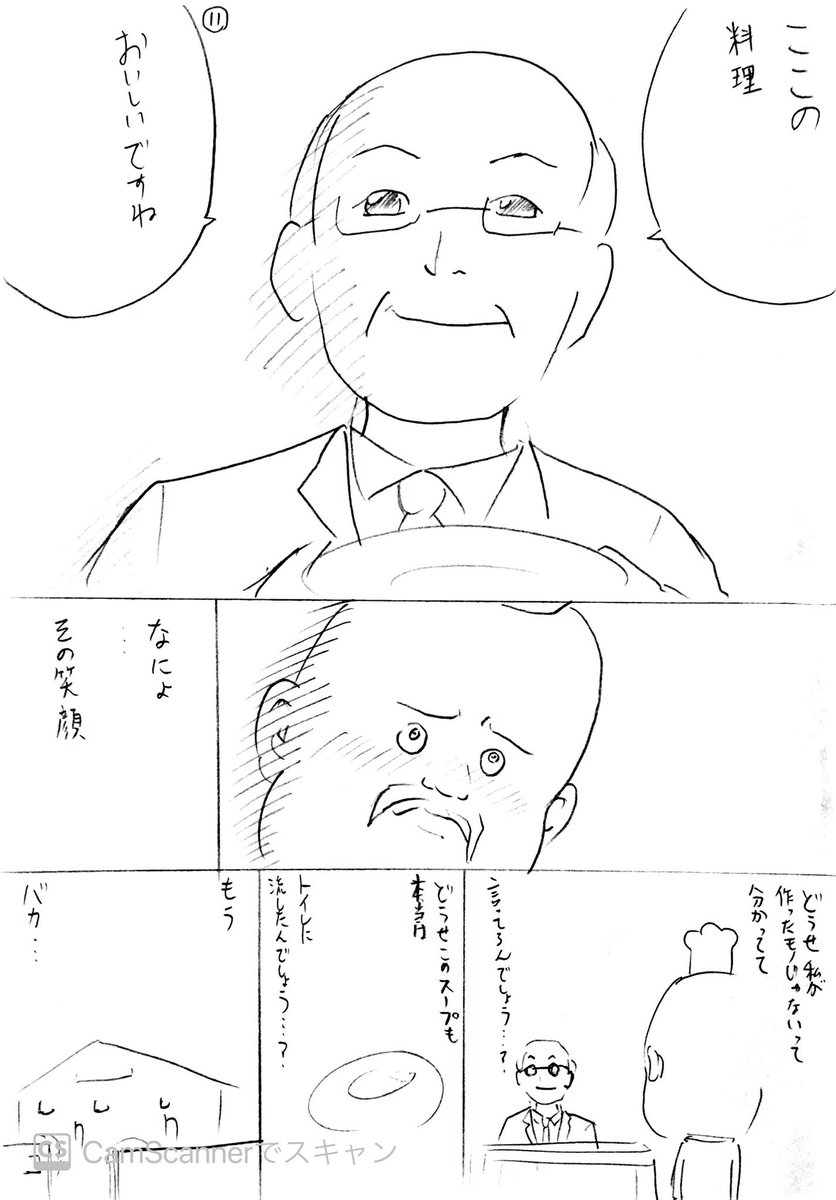 ⑪
ここの
料理
おいしいですね
なによ
…
その笑顔
どうせ私が
作ったモノじゃないって
分かってて
言ってるんでしょう…?
どうせこのスープも
本当は
トイレに
流したんでしょう…?
もう
バカ…
CS CamScannerでスキャン